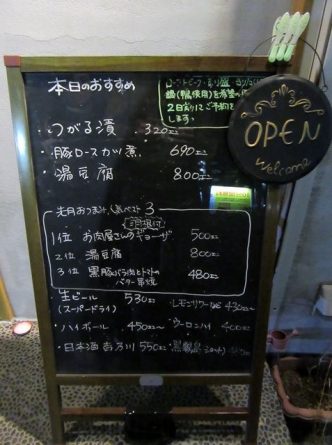 本日のおすすめ
鍋(鴨使用)を希望の際
2日前にご予約を
します。
OPEN
Welcome
・つがる漬 320円
・豚ロースカツ煮 690円
・湯豆腐 800円
先月おつまみ ベスト3
1位 お肉屋さんのギョーザ 500円
2位 湯豆腐 800円
3位 黒豚バラ肉とトマトの
バター串焼 480円
・生ビール 530円
(スーパードライ)
・レモンサワーなど 430円~
・ハイボール 450円~
・ウーロンハイ 400円
・日本酒 吉乃川 550円